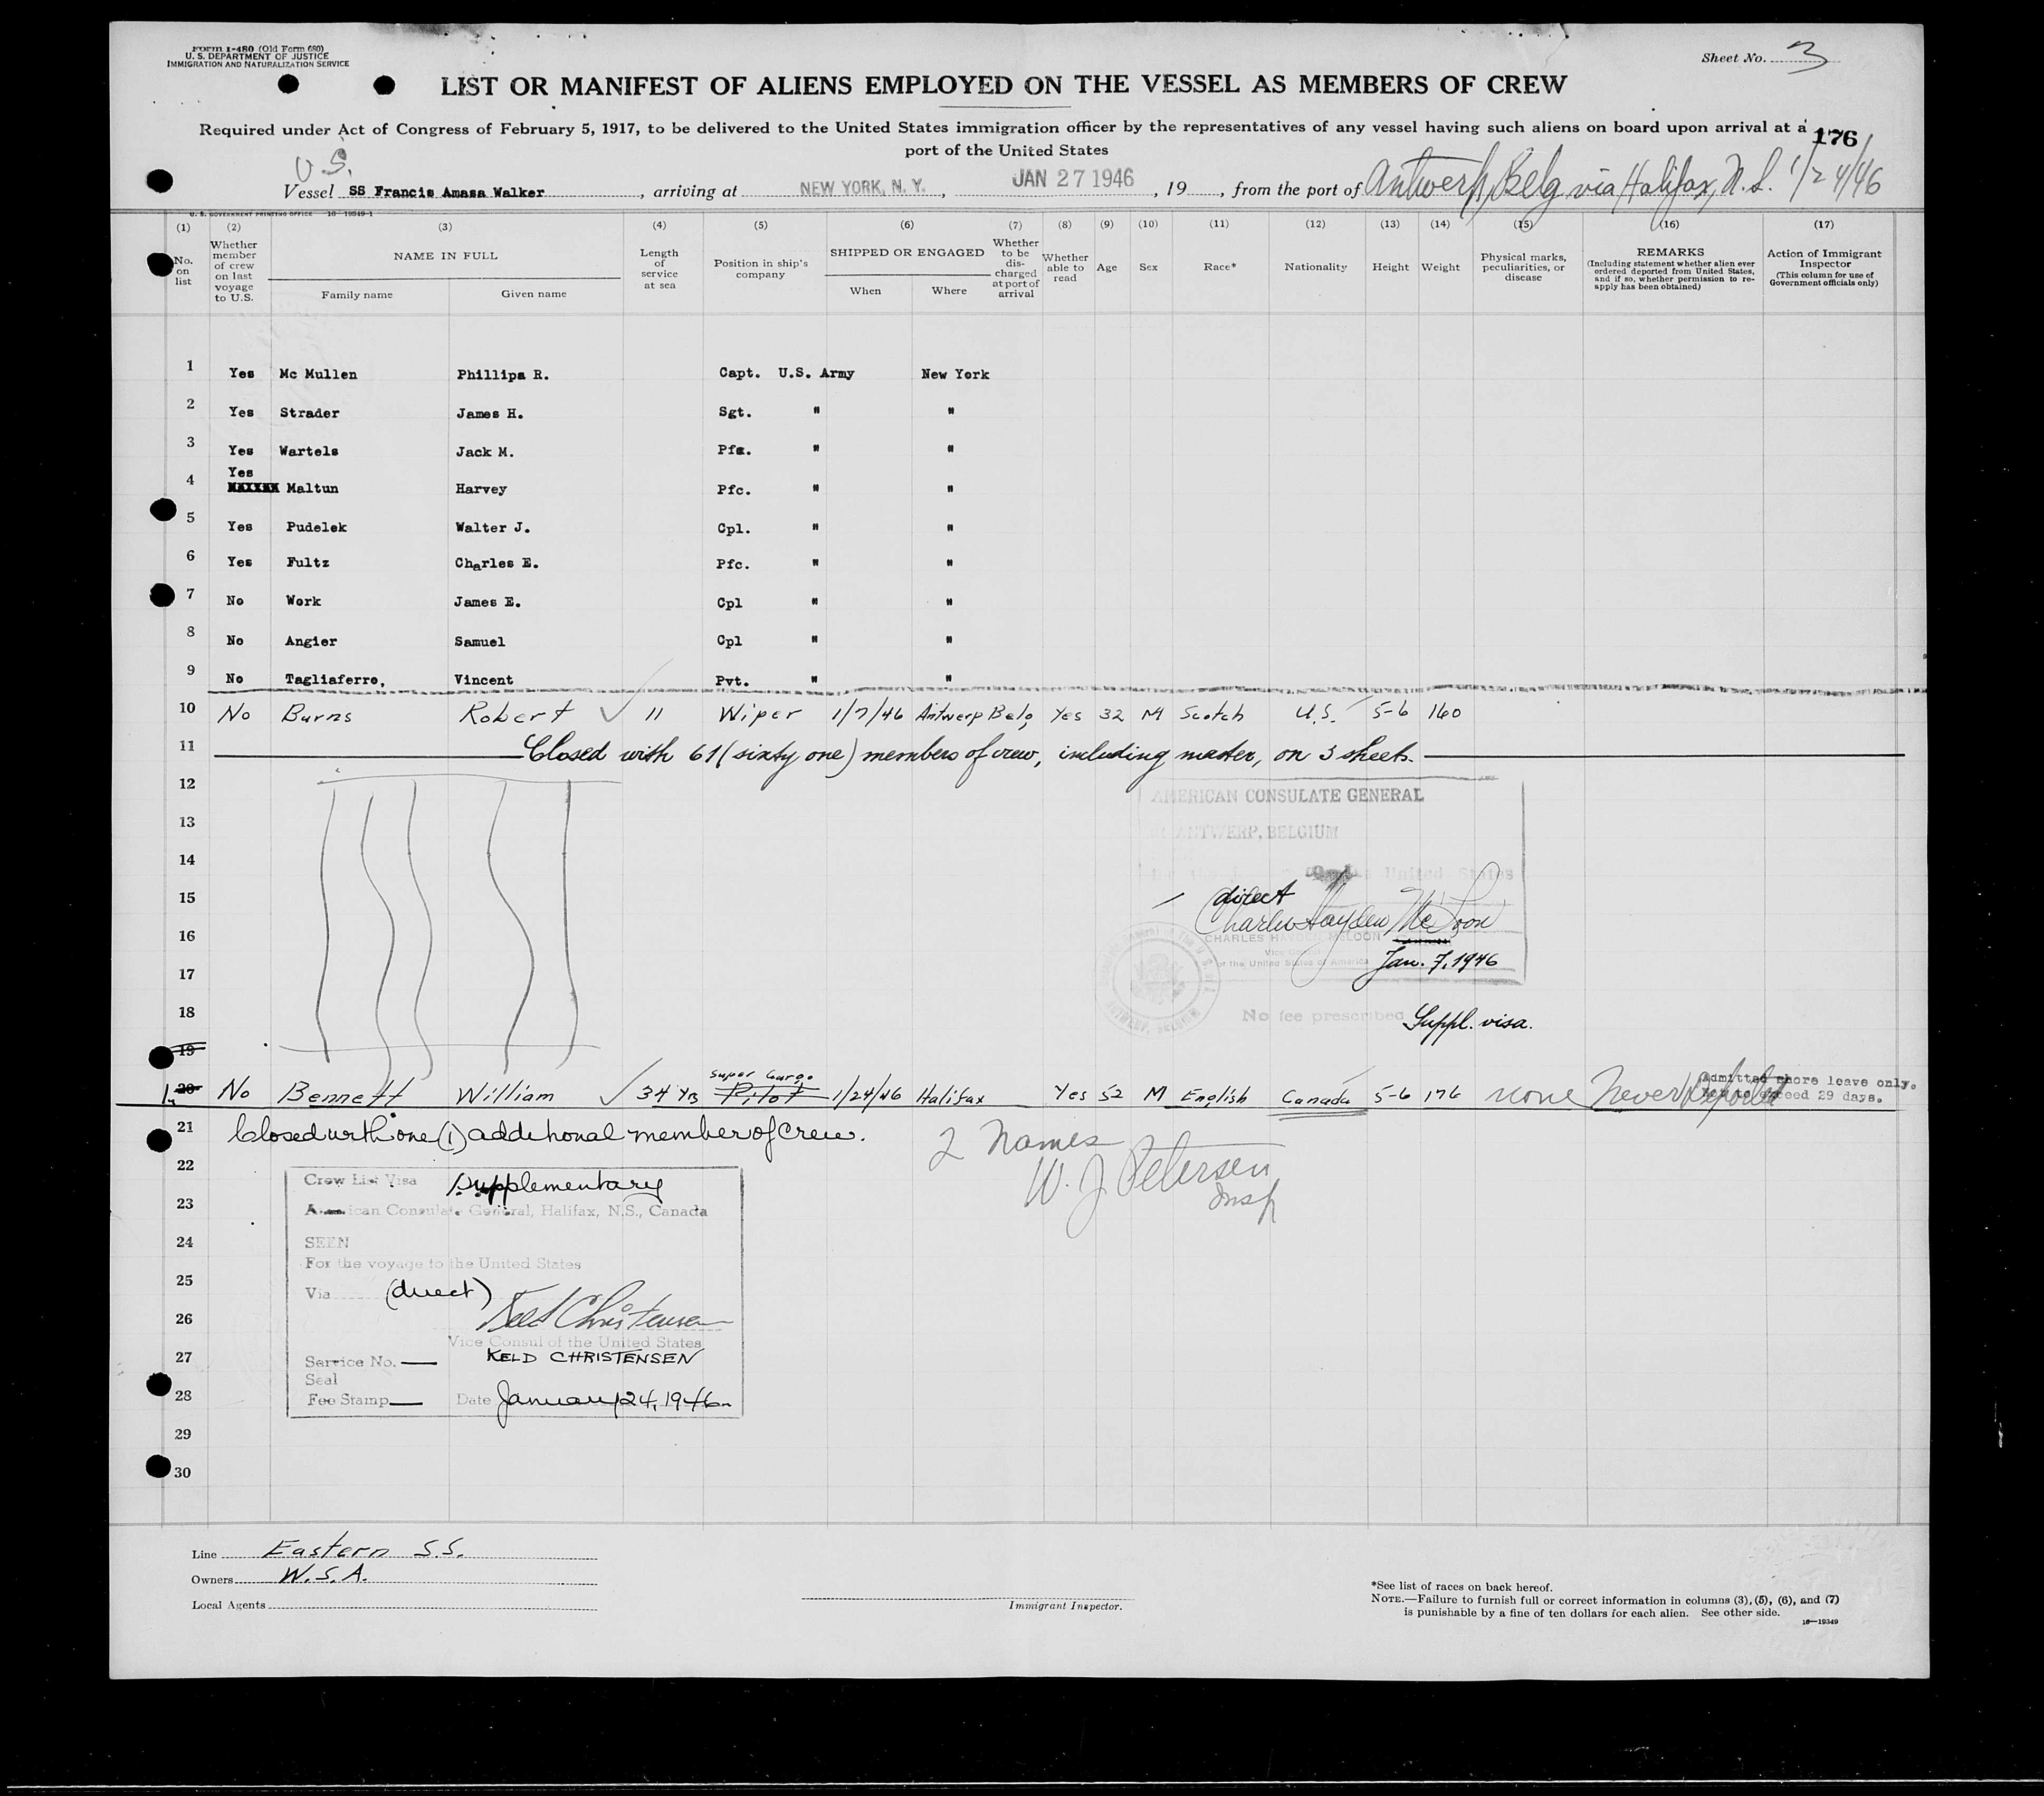 Form I-480 (Old Form 680)
U. S. DEPARTMENT OF JUSTICE
IMMIGRATION AND NATURALIZATION SERVICE
Sheet No. 3
LIST OR MANIFEST OF ALIENS EMPLOYED ON THE VESSEL AS MEMBERS OF CREW
Required under Act of Congress of February 5, 1917, to be delivered to the United States immigration officer by the representatives of any vessel having such aliens on board upon arrival at a
port of the United States
176
U.S.
Vessel SS Francis Amasa Walker, arriving at NEW YORK, N. Y., JAN 27 1946, 19, from the port of Antwerp, Belg via Halifax, N.S. 1/24/46
U. S. GOVERNMENT PRINTING OFFICE 16-19349-1
(1) (2) (3) (4) (5) (6) (7) (8) (9) (10) (11) (12) (13) (14) (15) (16) (17)
No. on list
Whether member of crew on last voyage to U.S.
NAME IN FULL
Family name Given name
Length of service at sea
Position in ship's company
SHIPPED OR ENGAGED
When Where
Whether to be discharged at port of arrival
Whether able to read
Age
Sex
Race*
Nationality
Height
Weight
Physical marks, peculiarities, or disease
REMARKS
(Including statement whether alien ever ordered deported from United States, and if so, whether permission to reapply has been obtained)
Action of Immigrant Inspector
(This column for use of Government officials only)
1 Yes Mc Mullen Phillips R. Capt. U.S. Army New York
2 Yes Strader James H. Sgt. " "
3 Yes Wartels Jack M. Pfc. " "
4 Yes Maltun Harvey Pfc. " "
5 Yes Pudelek Walter J. Cpl. " "
6 Yes Fultz Charles E. Pfc. " "
7 No Work James E. Cpl " "
8 No Angier Samuel Cpl " "
9 No Tagliaferro, Vincent Pvt. " "
10 No Burns Robert ✓ 11 Wiper 1/7/46 Antwerp Belg Yes 32 M Scotch U.S. 5-6 160
11 Closed with 61 (sixty one) members of crew, including master, on 3 sheets.
12
AMERICAN CONSULATE GENERAL
13
ANTWERP, BELGIUM
14
United States
15
direct
Charles Hayden McLoon
16
CHARLES HAYDEN McLOON
Vice Consul
of the United States of America
17
Jan. 7, 1946
ANTWERP, BELGIUM
18
No fee prescribed Suppl. visa.
19
1. 20 No Bennett William ✓ 34 Yrs Super Cargo Pilot 1/24/46 Halifax Yes 52 M English Canada 5-6 176 None Never Deported
Admitted shore leave only.
Not to exceed 29 days.
21 Closed with one (1) additional member of crew.
2 Names
W. J. Petersen
Insp
22
Crew List Visa Supplementary
23
American Consulate General, Halifax, N.S., Canada
24
SEEN
For the voyage to the United States
25
Via (direct)
26
Keld Christensen
Vice Consul of the United States
27
Service No. — KELD CHRISTENSEN
Seal
28
Fee Stamp — Date January 24, 1946
29
30
Line Eastern S.S.
Owners W.S.A.
Local Agents
Immigrant Inspector.
*See list of races on back hereof.
NOTE.—Failure to furnish full or correct information in columns (3), (5), (6), and (7)
is punishable by a fine of ten dollars for each alien. See other side.
16—19349